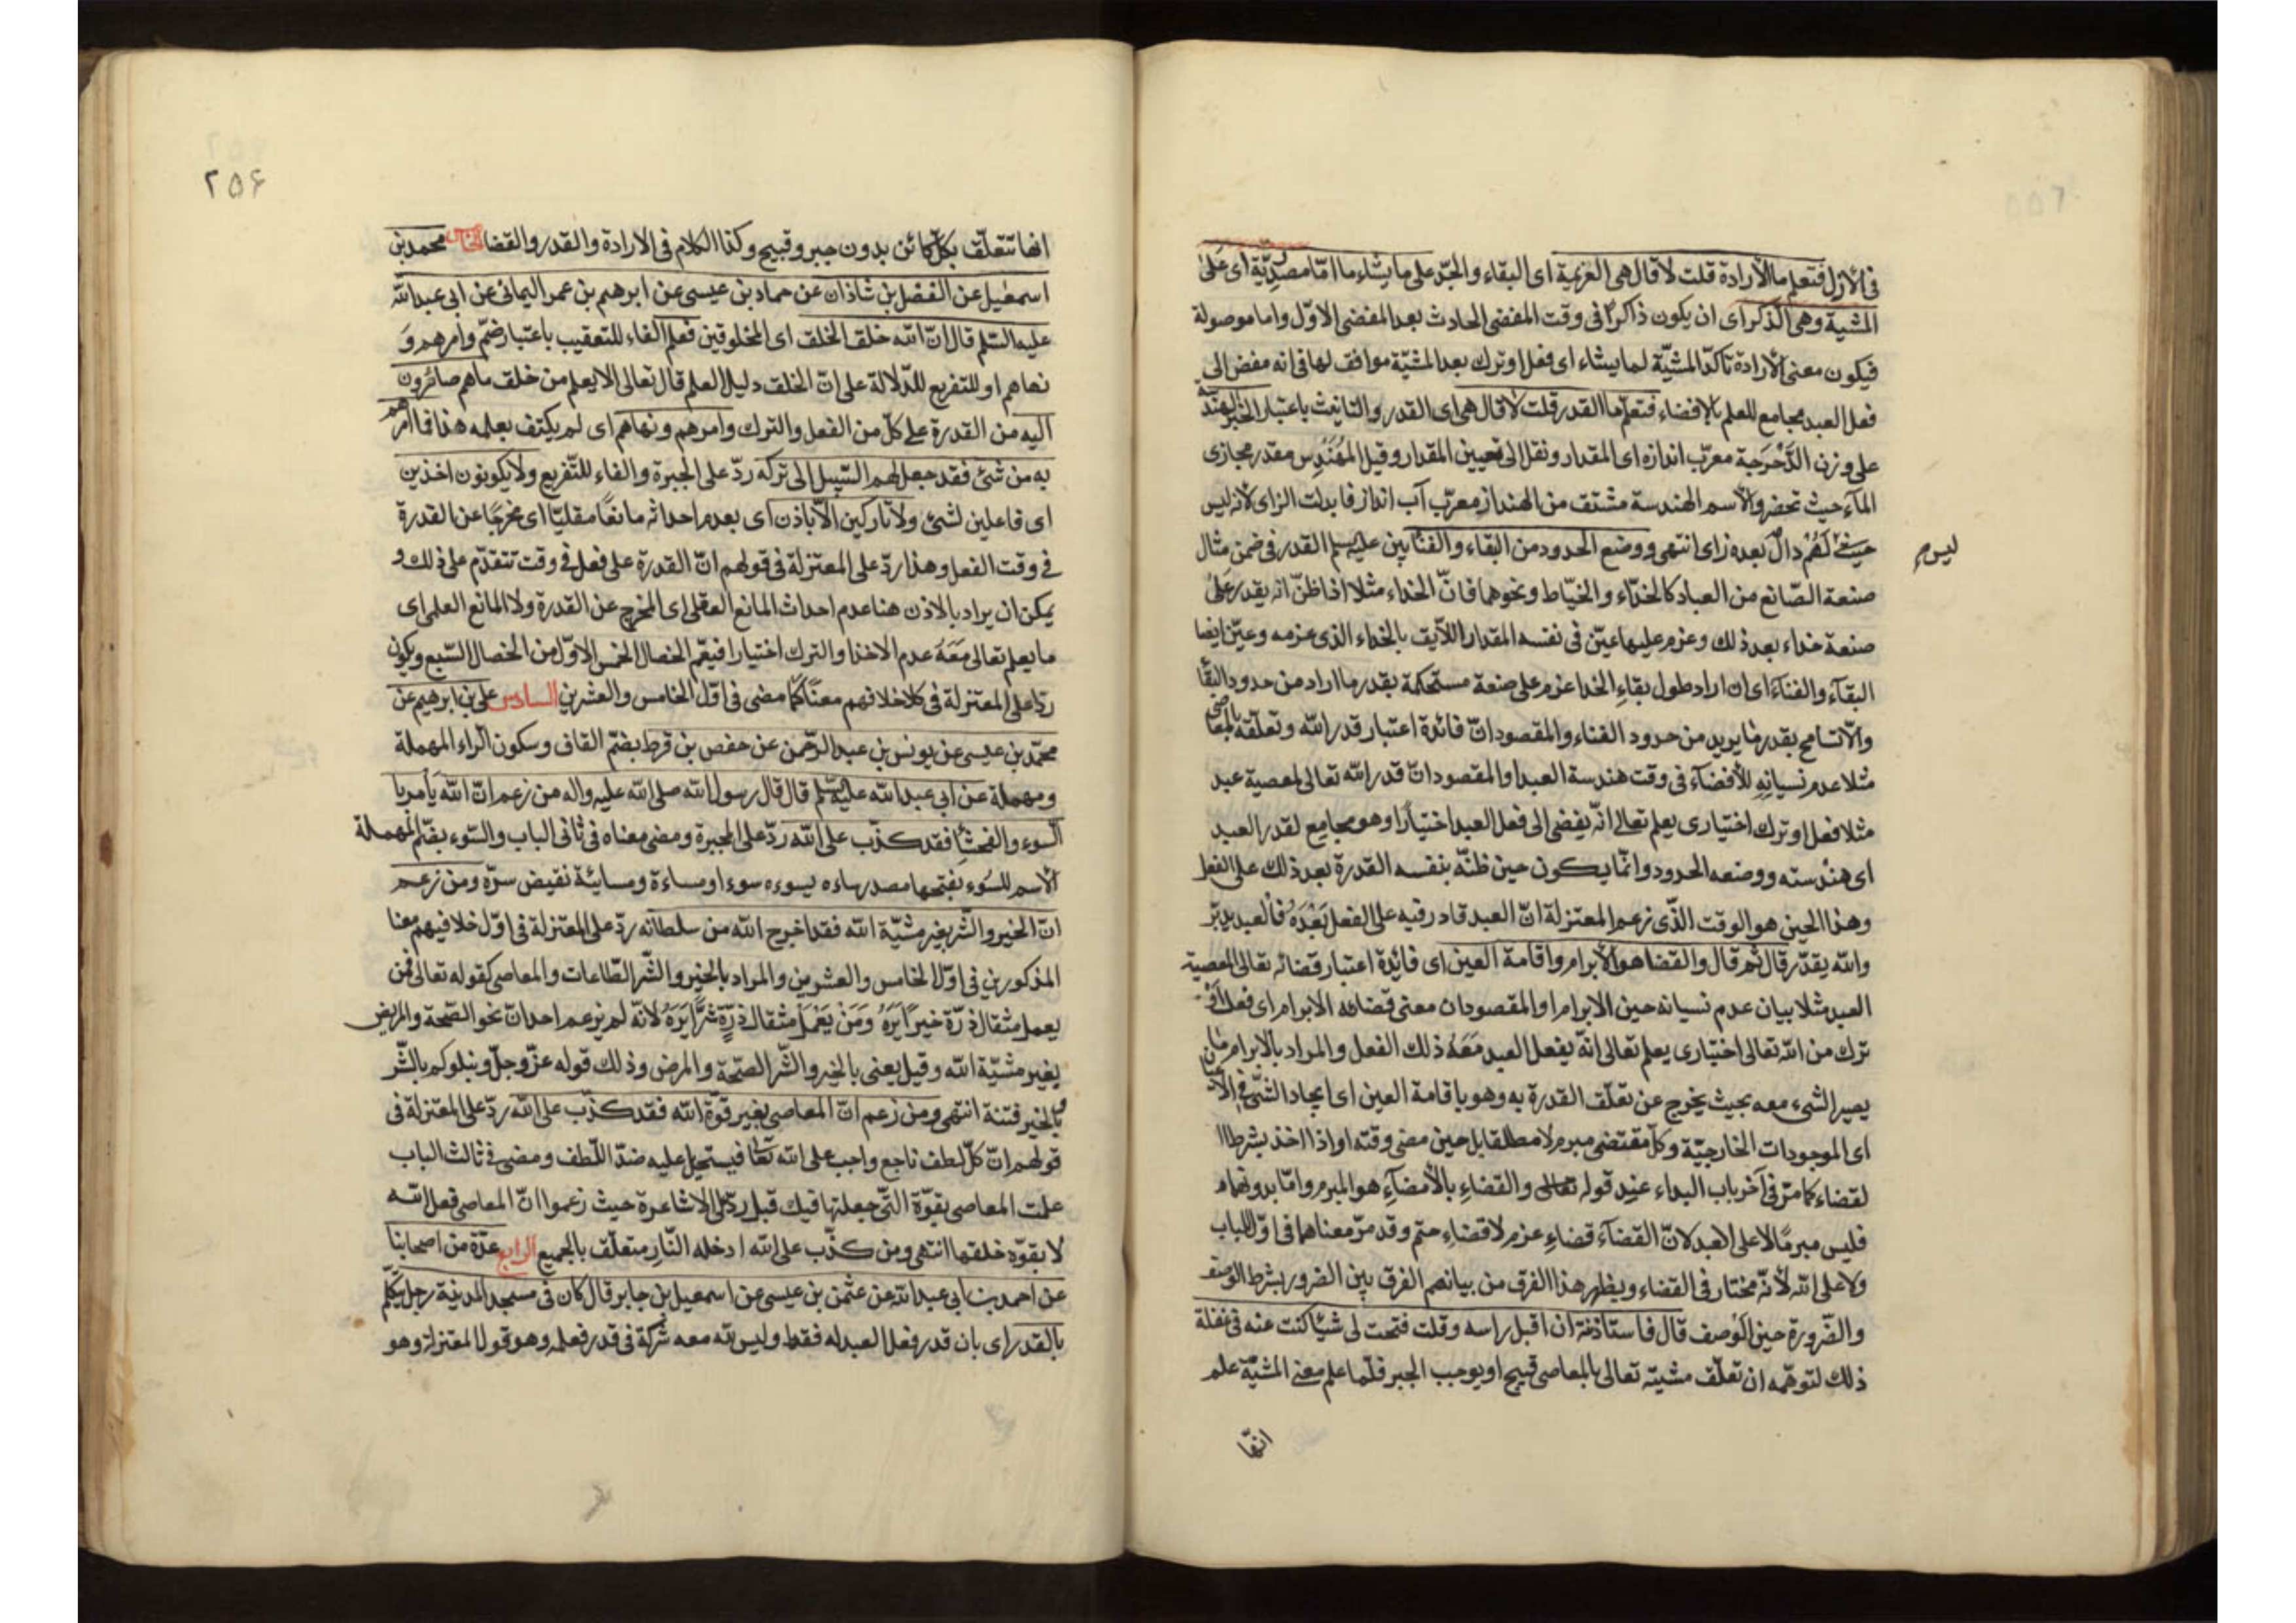 فى الازل فتعلم ما الارادة قلت لا قال هى العزيمة اى البقاء والجدّ على ما يشاء ما امّا مصدريّة اى على
المشية وهى الذكر اى ان يكون ذاكرا فى وقت المفضى الحادث بعد المفضى الاوّل واما موصولة
فيكون معنى الارادة تاكدّ المشيّة لما يشاء اى فعل او ترك بعد المشيّة موافق لها فى انه مفض الى
فعل العبد مجامع للعلم بالافضاء فتعلم ما القدر قلت لا قال هى اى القدر والتانيث باعتبار الخبر الهندسة
على وزن الدَّحْرَجة معرّب اندازه اى المقدار ونقل الى تعيين المقدار وقيل المُهَنْدِس مقدر مجارى
المآء حيث تحضر والاسم الهندسة مشتق من الهنداز معرّب آب انداز فابدلت الزاى لانه ليس
لَهُمْ دالٌ بعده زاى انتهى ووضع الحدود من البقاء والفنا بين عليه السلم القدر فى ضمن مثال
ليس
صنعة الصّانع من العباد كالحذّاء والخيّاط ونحوهما فانّ الحذاء مثلا اذا ظنّ انه يقدر على
صنعة حذاء بعد ذلك وعزم عليها عيّن فى نفسه المقدار اللّايق بالحذاء الذى عزمه وعيّن ايضا
البقآء والفنآء اى ان اراد طول بقاء الحذا عزم على صنعة مستحكمة بقدر ما اراد من حدود البقا
والّا تسامح بقدر ما يريد من حدود الفناء والمقصود انّ فائدة اعتبار قدر الله وتعلّقه بالمعاصى
مثلا عدم نسيانِهِ للأفضآء فى وقت هندسة العبد او المقصود انّ قدر الله تعالى لمعصية عبد
مثلا فعل او ترك اختيارى يعلم تعالى انّه يفضى الى فعل العبد اختيارًا وهو مجامع لقدر العبد
اى هندسته ووضعه الحدود وانّما يكون حين ظنّه بنفسه القدرة بعد ذلك على الفعل
وهذا الحين هو الوقت الذّى زعم المعتزلة انّ العبد قادر فيه على الفعل بَعْدَهُ فالعبد يدبّر
والله يقدّر قال ثم قال والقضا هو الأبرام واقامة العين اى فائدة اعتبار قضائه تعالى لمعصية
العبد مثلا بيان عدم نسيانه حين الابرام او المقصود ان معنى قضائه الابرام اى فعل اَوْ
ترك من الله تعالى اختيارى يعلم تعالى انّه يفعل العبد مَعَهُ ذلك الفعل والمراد بالابرام ما
يصير الشىء معه بحيث يخرج عن تعلّق القدرة به وهو باقامة العين اى ايجاد الشىء فى الاعيان
اى الموجودات الخارجيّة وكلّ مقتضى مبرم لا مطلقا بل حين مضى وقته او اذا اخذ بشرط ا
لقضاء كما مرّ فى آخر باب البداء عند قوله تعالى والقضاءِ بالأمضآءِ هو المبرم وامّا بدونهما
فليس مبرمًا لا على العبد لانّ القضآءَ قضاءِ عزم لا قضاءِ حتم وقد مرّ معناهما فى اوّل الباب
ولا على الله لأنّه مختار فى القضاء ويظهر هذا الفرق من بيانهم الفرق بين الضرورة بشرط الوصف
والضّرورة حين الوَصف قال فاستاذنته ان اقبل راسه وقلت فتحت لى شيئا كنت عنه فى غفلة
ذلك لتوهّمه ان تعلّق مشيته تعالى بالمعاصى قبيح او يوجب الجبر فلمّا علم معنى المشيّة علم
انّها
٢٥۶
انها تتعلّق بكلّ كائن بدون جبر وقبيح وكذا الكلام فى الارادة والقدر والقضا الخامس محمد بن
اسمعيل عن الفضل بن شاذان عن حماد بن عيسى عن ابرهيم بن عمر اليمانى عن ابى عبد الله
عليه السّلم قال انّ الله خلق الخلق اى المخلوقين فعلم الفاء للتعقيب باعتبار ضمّ وامرهم وَ
نهاهم او للتفريع للدّلالة على انّ الخلق دليل العلم قال تعالى الا يعلم من خلق ما هم صائرون
اليه من القدرة على كلّ من الفعل والترك وامرهم ونهاهم اى لم يكتف بعلمه هذا فما امرهم
به من شئ فقد جعل لهم السّبيل الى تركه ردّ على الجبرة والفاء للتّفريع ولا يكونون اخذين
اى فاعلين لشئ ولا تاركين الّا باذن اى بعدم احداثه مانعًا مقليّا اى مخرجًا عن القدرة
فى وقت الفعل وهذا ردّ على المعتزلة فى قولهم انّ القدرة على فعل فى وقت تتقدّم على ذلك و
يمكن ان يراد بالاذن هنا عدم احداث المانع العقلى اى المخرج عن القدرة ولا المانع العلمى اى
ما يعلم تعالى مَعَهُ عدم الاخذ او الترك اختيارا فيعّم الخصال الخمس الاوّل من الخصال السّبع ويكون
ردّا على المعتزلة فى كلا خلافهم معنا كما مضى فى اوّل الخامس والعشرين السادس على بن ابرهيم عن
محمّد بن عيسى عن يونس بن عبد الرّحمن عن حفص بن قرط بضمّ القاف وسكون الرّاء المهملة
ومهملة عن ابى عبد الله عليه السّلم قال قال رسول الله صلى الله عليه واله من زعم انّ الله يأمر با
لسّوء والفحشا فقد كذّب على الله ردّ على المجبرة ومضى معناه فى ثانى الباب والسّوء بضمّ المهملة
الأسم للسّوء بفتحها مصدر ساءه يسوءه سوءا ومساءة ومسائة نقيض سرّه ومن زعم
انّ الخير والشّر بغير مشيّة الله فقد اخرج الله من سلطانه ردّ على المعتزلة فى اوّل خلافيهم معنا
المذكورين فى اوّل الخامس والعشرين والمراد بالخير والشّر الطّاعات والمعاصى كقوله تعالى فمن
يعمل مثقال ذرّة خيرًا يَرَهُ وَمَنْ يَعْمَلْ مثقال ذرّةٍ شرًّا يَرَهُ لانّه لم يزعم احد انّ نحو الصّحة والمرض
بغير مشيّة الله وقيل يعنى بالخير والشّر الصّحّة والمرض وذلك قوله عزّ وجلّ ونبلوكم بالشّر
والخير فتنة انتهى ومن زعم انّ المعاصى بغير قوّة الله فقد كذّب على الله ردّ على المعتزلة فى
قولهم انّ كلّ لطف ناجع واجب على الله تعا فيستحيل عليه ضدّ اللّطف ومضى فى ثالث الباب
عملت المعاصى بقوّة التّى جعلتها فيك قبل ردّ على الاشاعرة حيث زعموا انّ المعاصى فعل الله
لا بقوّة خلقها انتهى ومن كذّب على الله ادخله النّار متعلّق بالجميع الرابع عدّة من اصحابنا
عن احمد بن ابى عبد الله عن عثمن بن عيسى عن اسمعيل بن جابر قال كان فى مسجد المدينة رجل يتكلّم
بالقدر اى بان قدر فعل العبد له فقط وليس لله معه شركة فى قدر فعله وهو قول المعتزلة وهو